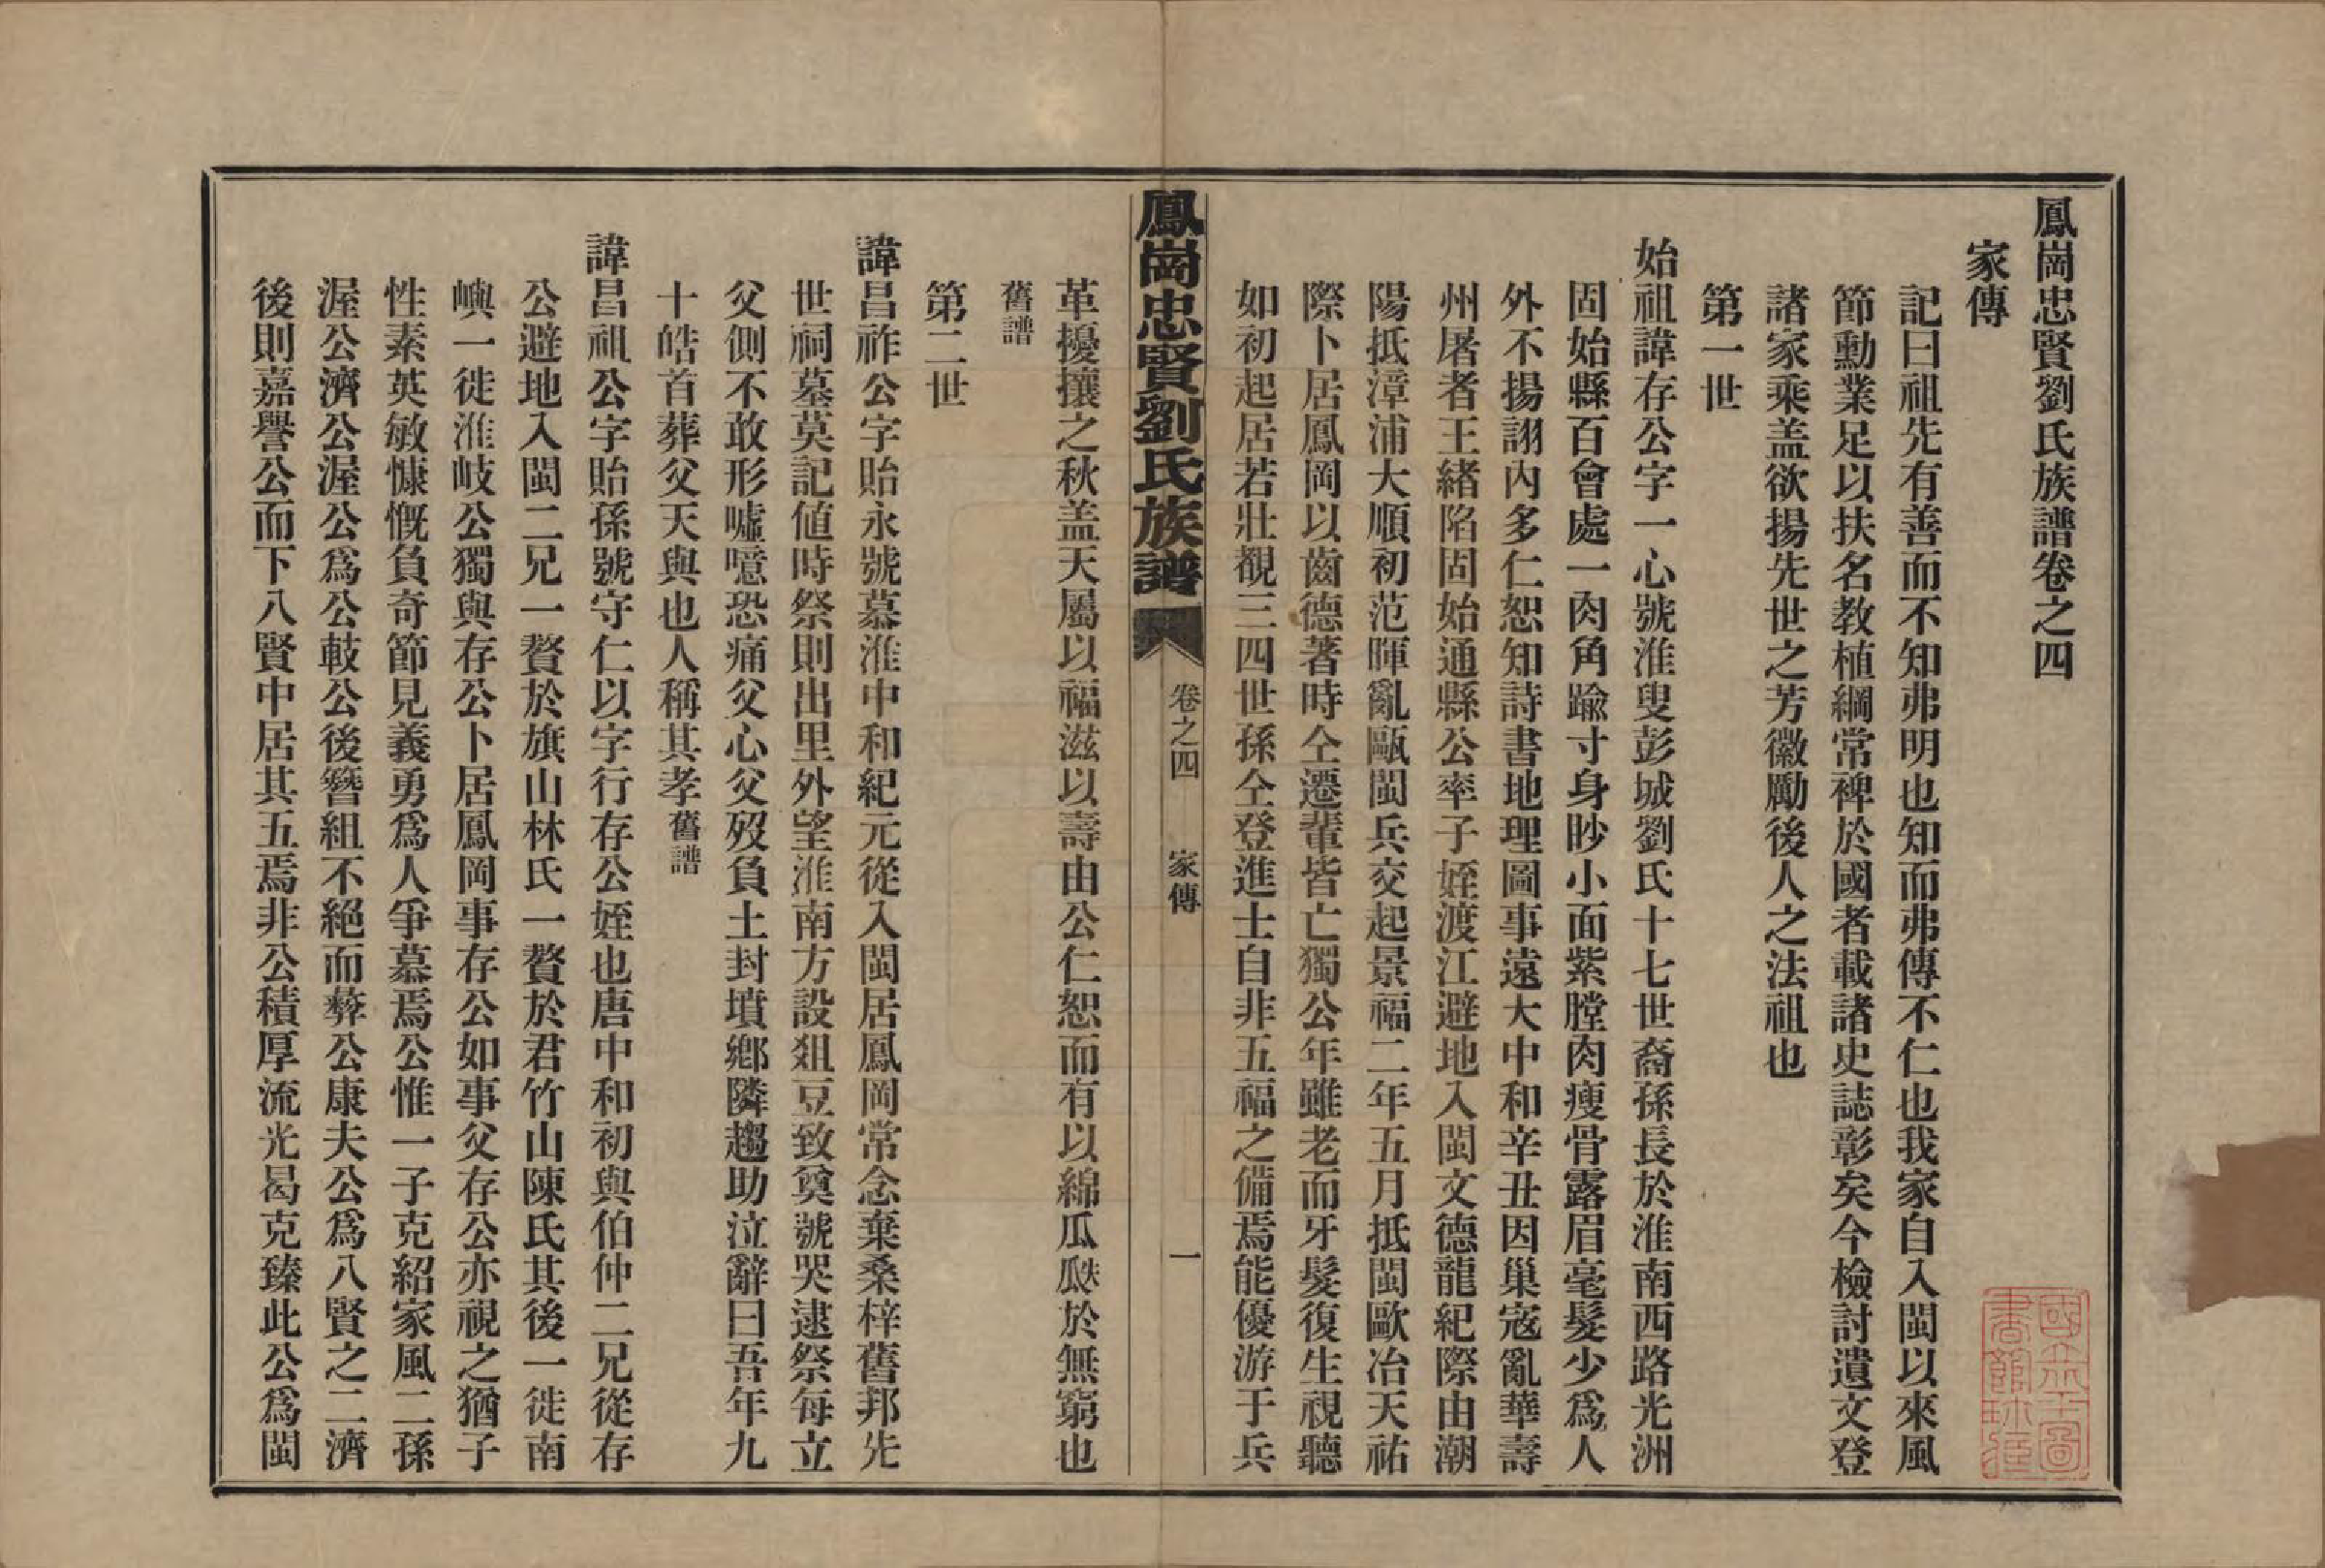 鳳崗忠賢劉氏族譜卷之四
家傳
記曰祖先有善而不知弗明也知而弗傳不仁也我家自入閩以來風
節勳業足以扶名教植綱常裨於國者載諸史誌彰矣今檢討遺文登
諸家乘盖欲揚先世之芳徽勵後人之法祖也
第一世
始祖諱存公字一心號淮叟彭城劉氏十七世裔孫長於淮南西路光洲
固始縣百會處一肉角踰寸身眇小面紫膛肉瘦骨露眉毫髮少爲人
外不揚詡內多仁恕知詩書地理圖事遠大中和辛丑因巢寇亂華壽
州屠者王緒陷固始通縣公率子姪渡江避地入閩文德龍紀際由潮
陽抵漳浦大順初范暉亂甌閩兵交起景福二年五月抵閩歐冶天祐
際卜居鳳岡以齒德著時仝遷輩皆亡獨公年雖老而牙髮復生視聽
如初起居若壯覩三四世孫仝登進士自非五福之備焉能優游于兵
鳳崗忠賢劉氏族譜 卷之四 家傳 一
革擾攘之秋盖天屬以福滋以壽由公仁恕而有以綿瓜瓞於無窮也
舊譜
第二世
諱昌祚公字貽永號慕淮中和紀元從入閩居鳳岡常念棄桑梓舊邦先
世祠墓莫記值時祭則出里外望淮南方設俎豆致奠號哭逮祭每立
父側不敢形噓噫恐痛父心父歿負土封墳鄉隣趨助泣辭曰吾年九
十皓首葬父天與也人稱其孝舊譜
諱昌祖公字貽孫號守仁以字行存公姪也唐中和初與伯仲二兄從存
公避地入閩二兄一贅於旗山林氏一贅於君竹山陳氏其後一徙南
嶼一徙淮岐公獨與存公卜居鳳岡事存公如事父存公亦視之猶子
性素英敏慷慨負奇節見義勇爲人爭慕焉公惟一子克紹家風二孫
渥公濟公渥公爲公䡋公後簪組不絕而彝公康夫公爲八賢之二濟
後則嘉譽公而下八賢中居其五焉非公積厚流光曷克臻此公爲閩